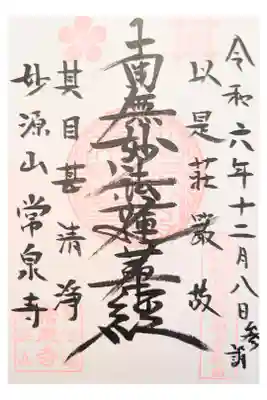 令和六年十二月八日参詣
以是荘厳故
南無妙法蓮華経
其目甚清浄
妙源山常泉寺